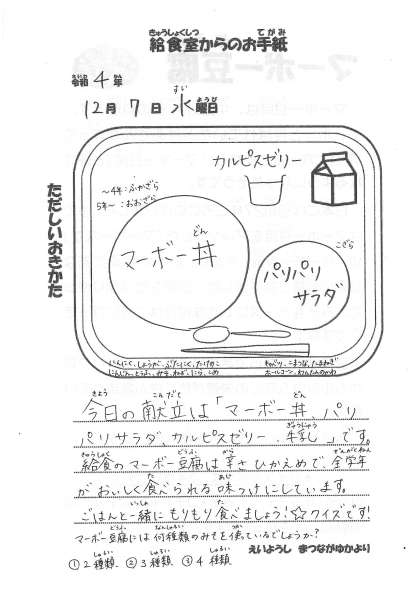 給食室からのお手紙
令和4年
12月7日水曜日
ただしいおきかた
カルピスゼリー
～4年:ふかざら
5年～:おおざら
マーボー丼
こざら
パリパリ
サラダ
にんにく、しょうが、ぶたにく、たけのこ
にんじん、とうふ、みそ、ねぎ、にら、こめ
キャベツ、こまつな、たまねぎ
ホールコーン、わんたんのかわ
今日の献立は「マーボー丼、パリ
パリサラダ、カルピスゼリー、牛乳」です。
給食のマーボー豆腐は辛さひかえめで、全学年
がおいしく食べられる味つけにしています。
ごはんと一緒にもりもり食べましょう!☆クイズです!
マーボー豆腐には何種類のみそを使っているでしょうか?
えいようし まつながゆかより
①2種類 ②3種類 ③4種類